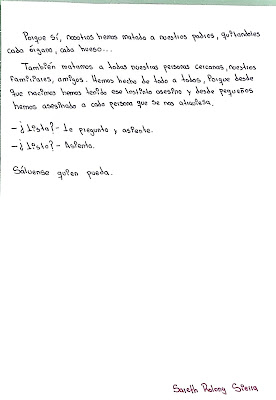 Porque sí, nosotros hemos matado a nuestros padres, quitandoles
cada órgano, cada hueso...
También matamos a todas nuestras personas cercanas, nuestros
familiares, amigos. Hemos hecho de todo a todos, Porque desde
que nacimos hemos tenido ese instinto asesino y desde pequeños
hemos asesinado a cada persona que se nos atraviesa.
-¿Lista?- Le pregunto y asiente.
-¿Listo?- Asiento.
Sálvense quien pueda.
Sareth Polong Sierra